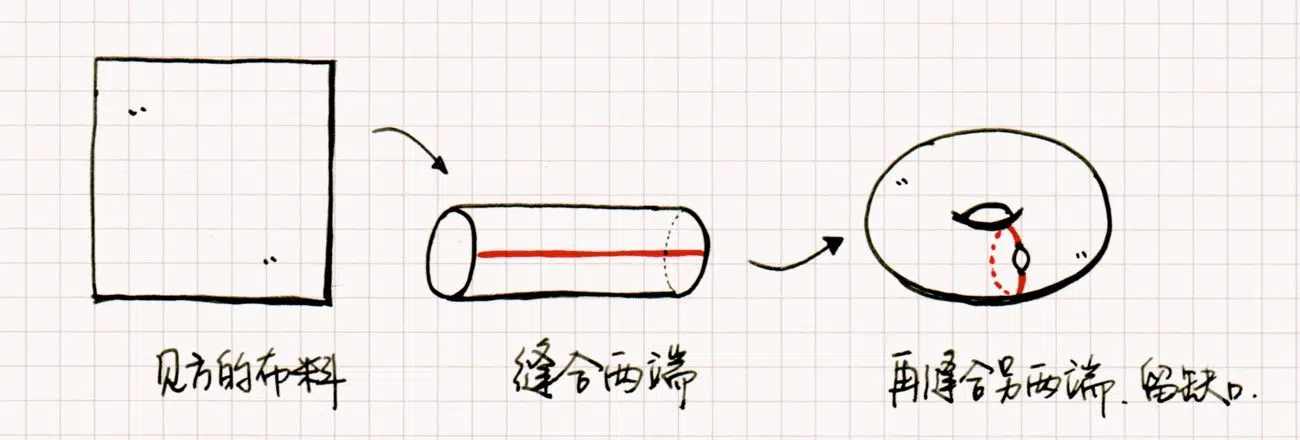 见方的布料
缝合两端
再缝合另两端.留缺口.